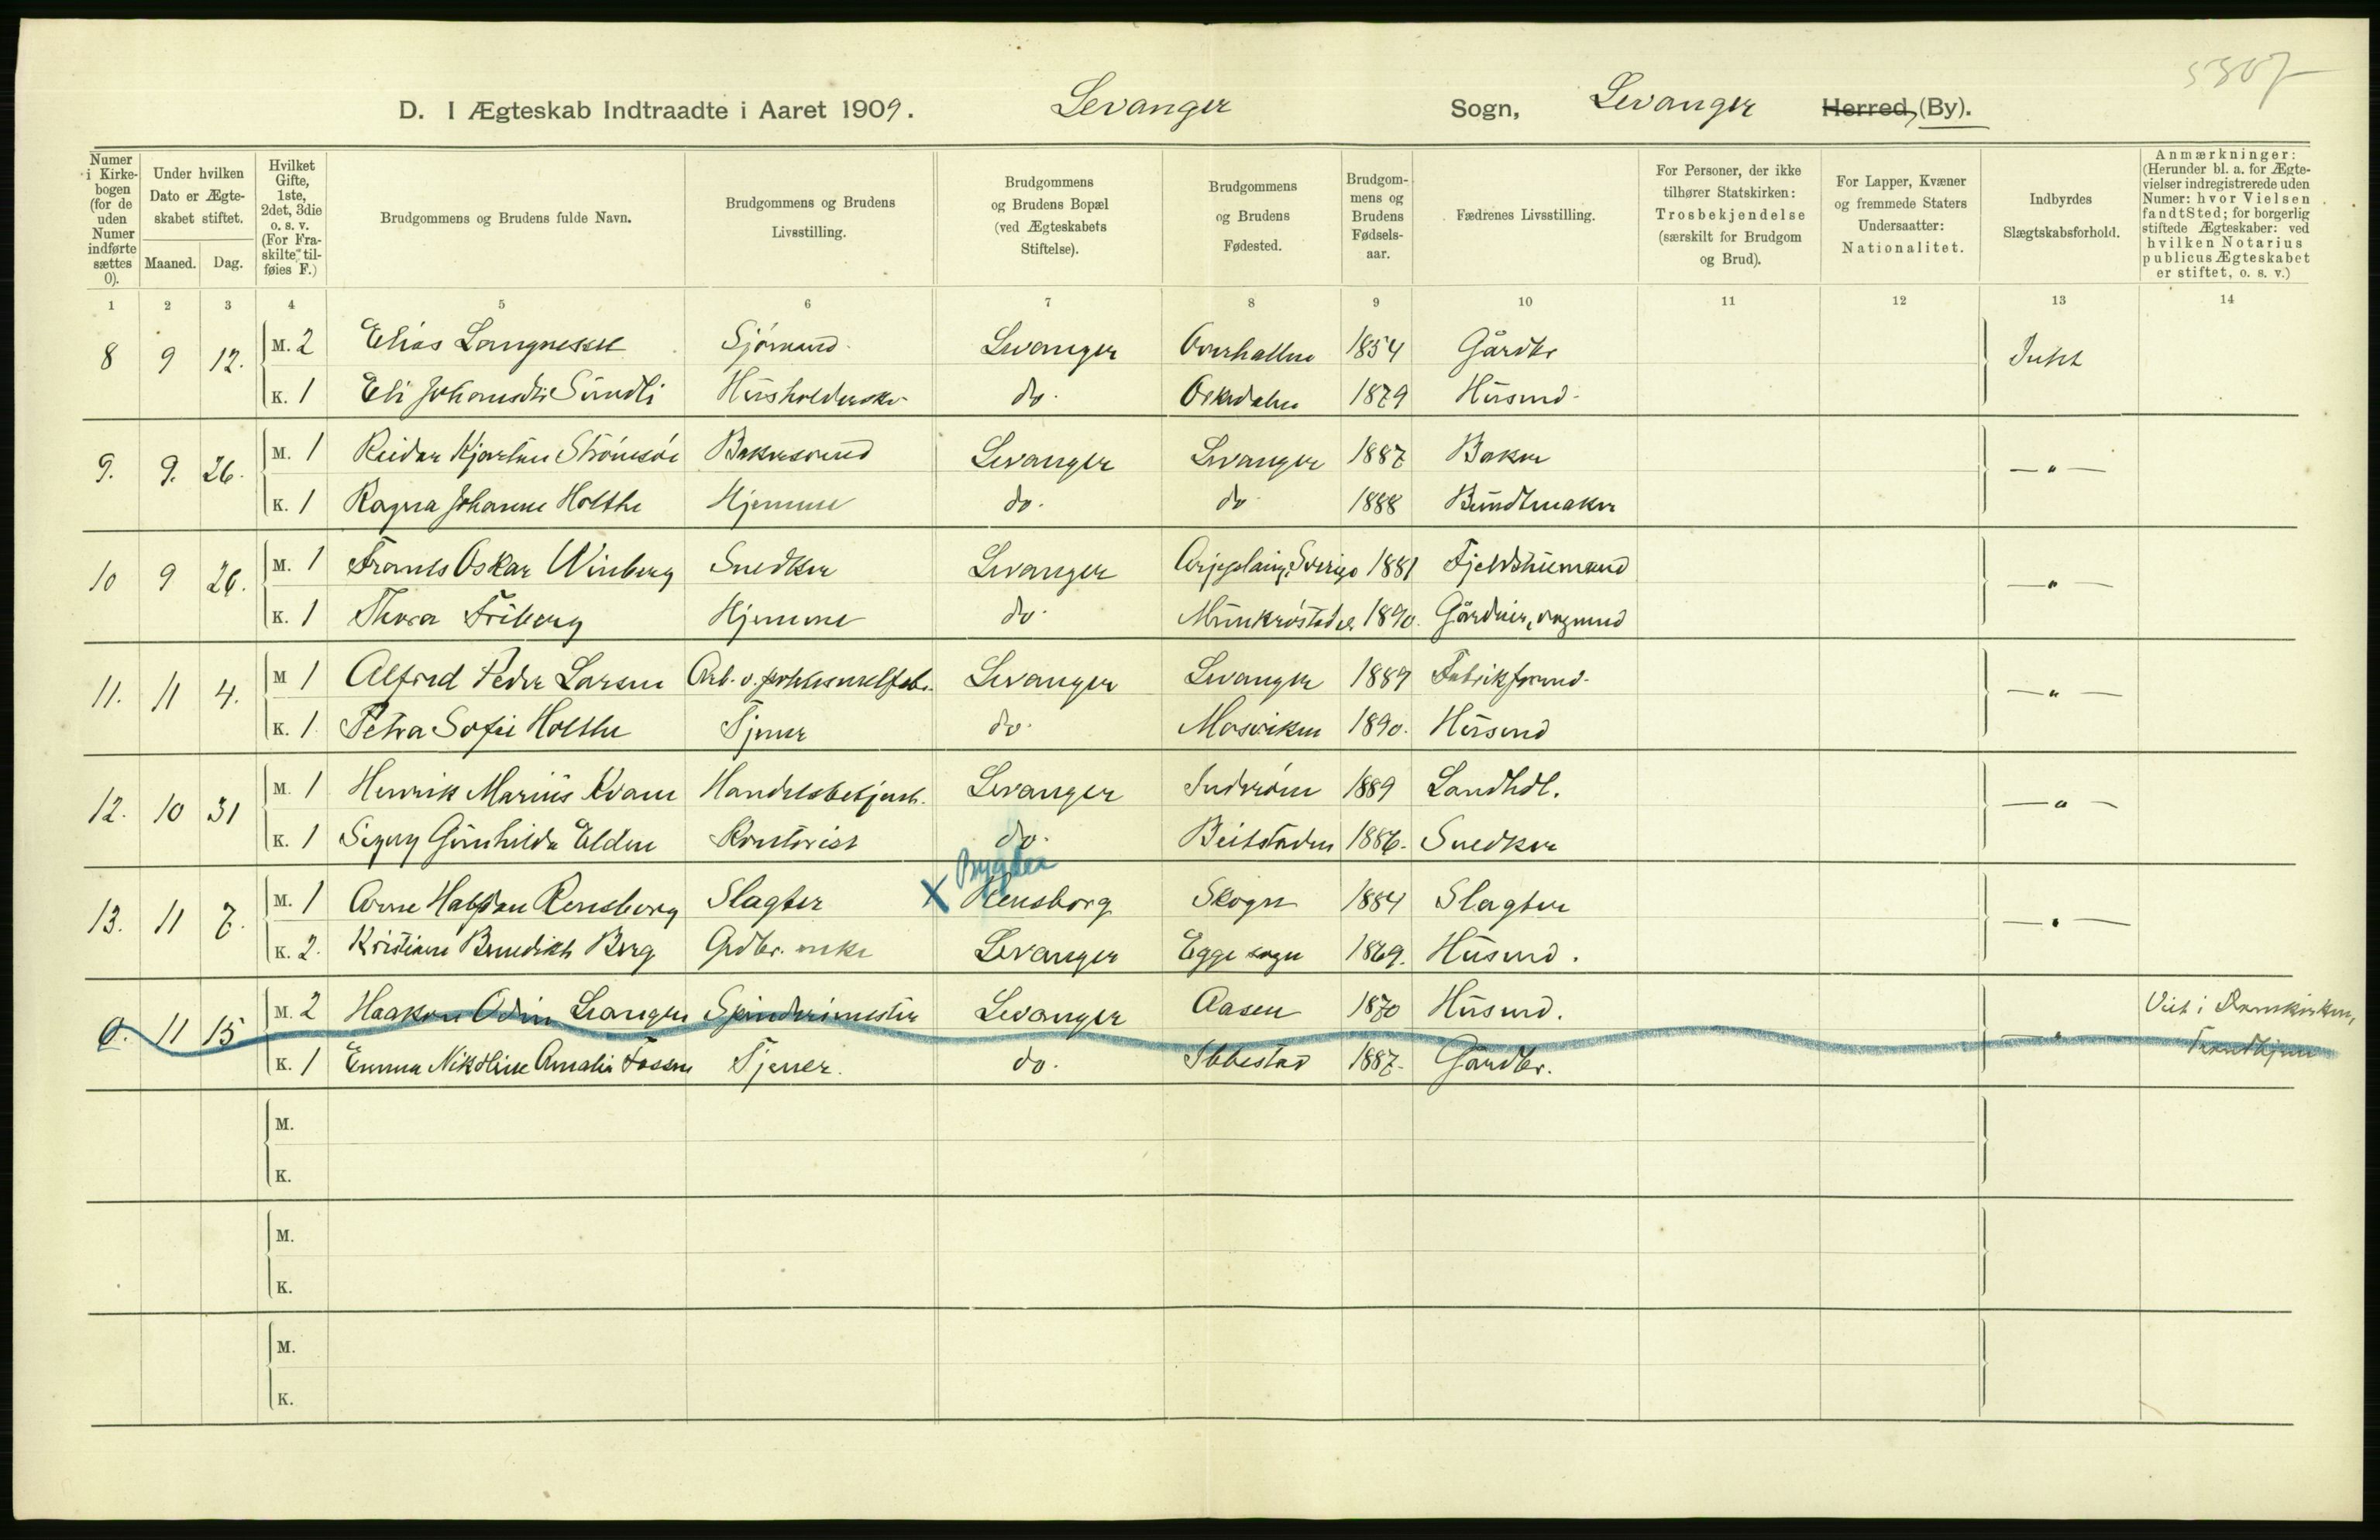 5307
D. I Ægteskab Indtraadte i Aaret 1909. Levanger Sogn, Levanger Herred, (By).
Numer i Kirkebogen (for de uden Numer indførte sættes 0).
Under hvilken Dato er Ægteskabet stiftet.
Maaned. Dag.
Hvilket Gifte, 1ste, 2det, 3die o. s. v. (For Fraskilte tilføies F.)
Brudgommens og Brudens fulde Navn.
Brudgommens og Brudens Livsstilling.
Brudgommens og Brudens Bopæl (ved Ægteskabets Stiftelse).
Brudgommens og Brudens Fødested.
Brudgommens og Brudens Fødselsaar.
Fædrenes Livsstilling.
For Personer, der ikke tilhører Statskirken: Trosbekjendelse (særskilt for Brudgom og Brud).
For Lapper, Kvæner og fremmede Staters Undersaatter: Nationalitet.
Indbyrdes Slægtskabsforhold.
Anmærkninger: (Herunder bl. a. for Ægtevielser indregistrerede uden Numer: hvor Vielsen fandt Sted; for borgerlig stiftede Ægteskaber: ved hvilken Notarius publicus Ægteskabet er stiftet, o. s. v.)
1 2 3 4 5 6 7 8 9 10 11 12 13 14
8 9 12. M. 2 Elias Langnesset Sjømand Levanger Overhallen 1854 Gårdbr Intet
K. 1 Eli Johansdtr Sundli Husholderske do. Orkedalen 1879 Husmd.
9. 9. 26. M. 1 Reidar Kjartan Strømsøe Bakersvend Levanger Levanger 1887 Baker — " —
K. 1 Ragna Johanne Holthe Hjemme do. do 1888 Bundtmaker
10 9 26. M. 1 Frants Oskar Winberg Snedker Levanger Arjeplaug, Sverige 1881 — " —
K. 1 Thora Friberg Hjemme do. 1890.
11. 11 4. M 1 Alfred Peder Larsen Levanger Levanger 1889 — " —
K. 1 Petra Sofie Holthe Tjener do. Mosviken 1890. Husmd
12. 10 31 M. 1 Henrik Marius Kvam Handelsbetjent. Levanger Inderøen 1889 Landhdl. — " —
K. 1 Gunhilda Elden Kontorist do. Beitstaden 1886. Snedker
Bygden
13. 11 7. M. 1 Arne Halfdan Rensberg Slagter X Rensborg Skogn 1884 Slagter — " —
K. 2. Kristiane Benedikte Berg Gdbr. enke Levanger Egge sogn 1869. Husmd.
0. 11 15 M. 2 Haakon Odin Levanger Aasen 1870 Husmd. — " — Viet i Domkirken,
K. 1 Emma Nikoline Amalia Fossen Tjener. do. Ibbestad 1887. Gårdbr. Trondhjem
M.
K.
M.
K.
M.
K.